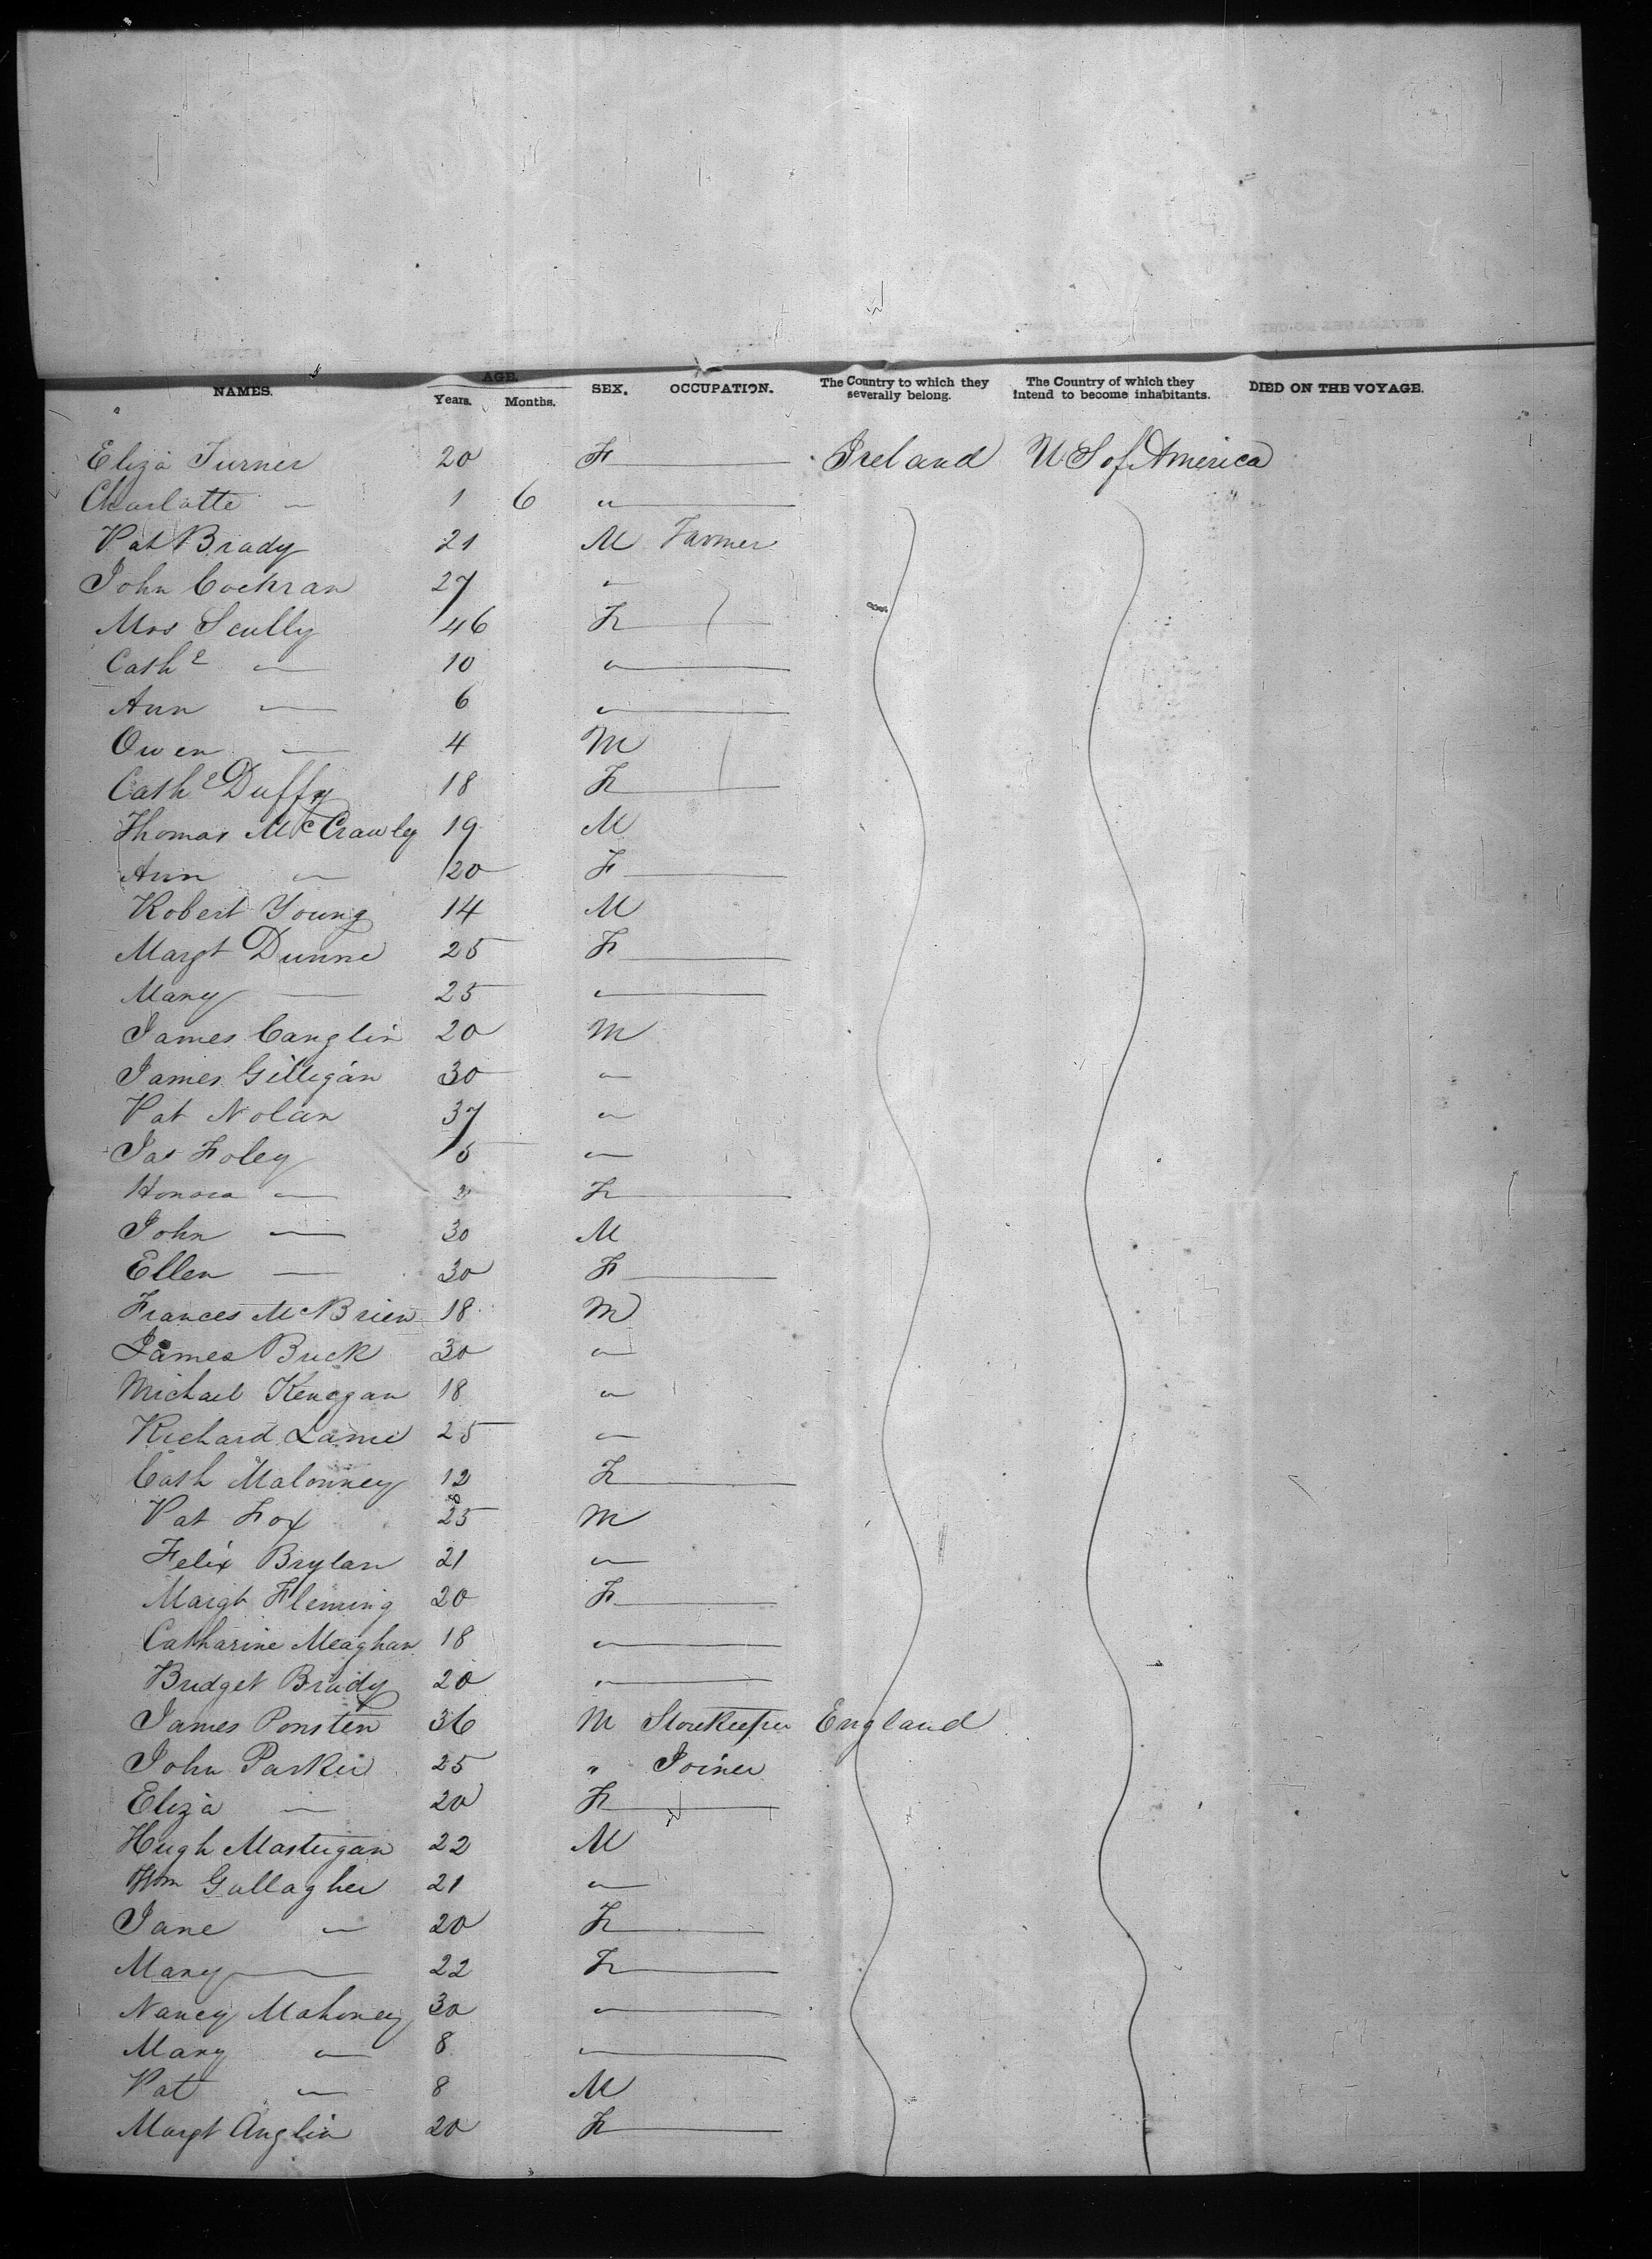 NAMES. AGE. Years. Months. SEX. OCCUPATION. The Country to which they severally belong. The Country of which they intend to become inhabitants. DIED ON THE VOYAGE.
Eliza Turner 20 F Ireland U S of America
Charlotte — 1 6 "
Pat Brady 21 M Farmer
John Cockran 27 "
Mrs Scully 46 F
Cathe — 10 "
Ann — 6 "
Owen — 4 M
Cathe Duffy 18 F
Thomas McCrawley 19 M
Ann " 20 F
Robert Young 14 M
Margt Dunne 25 F
Mary — 25 "
James Canglin 20 M
James Gilligan 30 "
Pat Nolan 37 "
Jas Foley 5 "
Honora — F
John — 30 M
Ellen — 30 F
Frances McBrien 18 M
James Buck 30 "
Michael Kenegan 18 "
Richard Lamie 25 "
Cath Malonney 12 F
Pat Fox 25 M
Felix Brylan 21 "
Margt Fleming 20 F
Catharine Meaghan 18 "
Bridget Brady 20 "
James Ponsten 36 M Storekeeper England
John Parker 25 " Joiner
Eliza — 20 F
Hugh Mastergan 22 M
Wm Gallagher 21 "
Jane " 20 F
Mary — 22 F
Nancy Mahoney 30 "
Mary " 8 "
Pat " 8 M
Margt Anglin 20 F